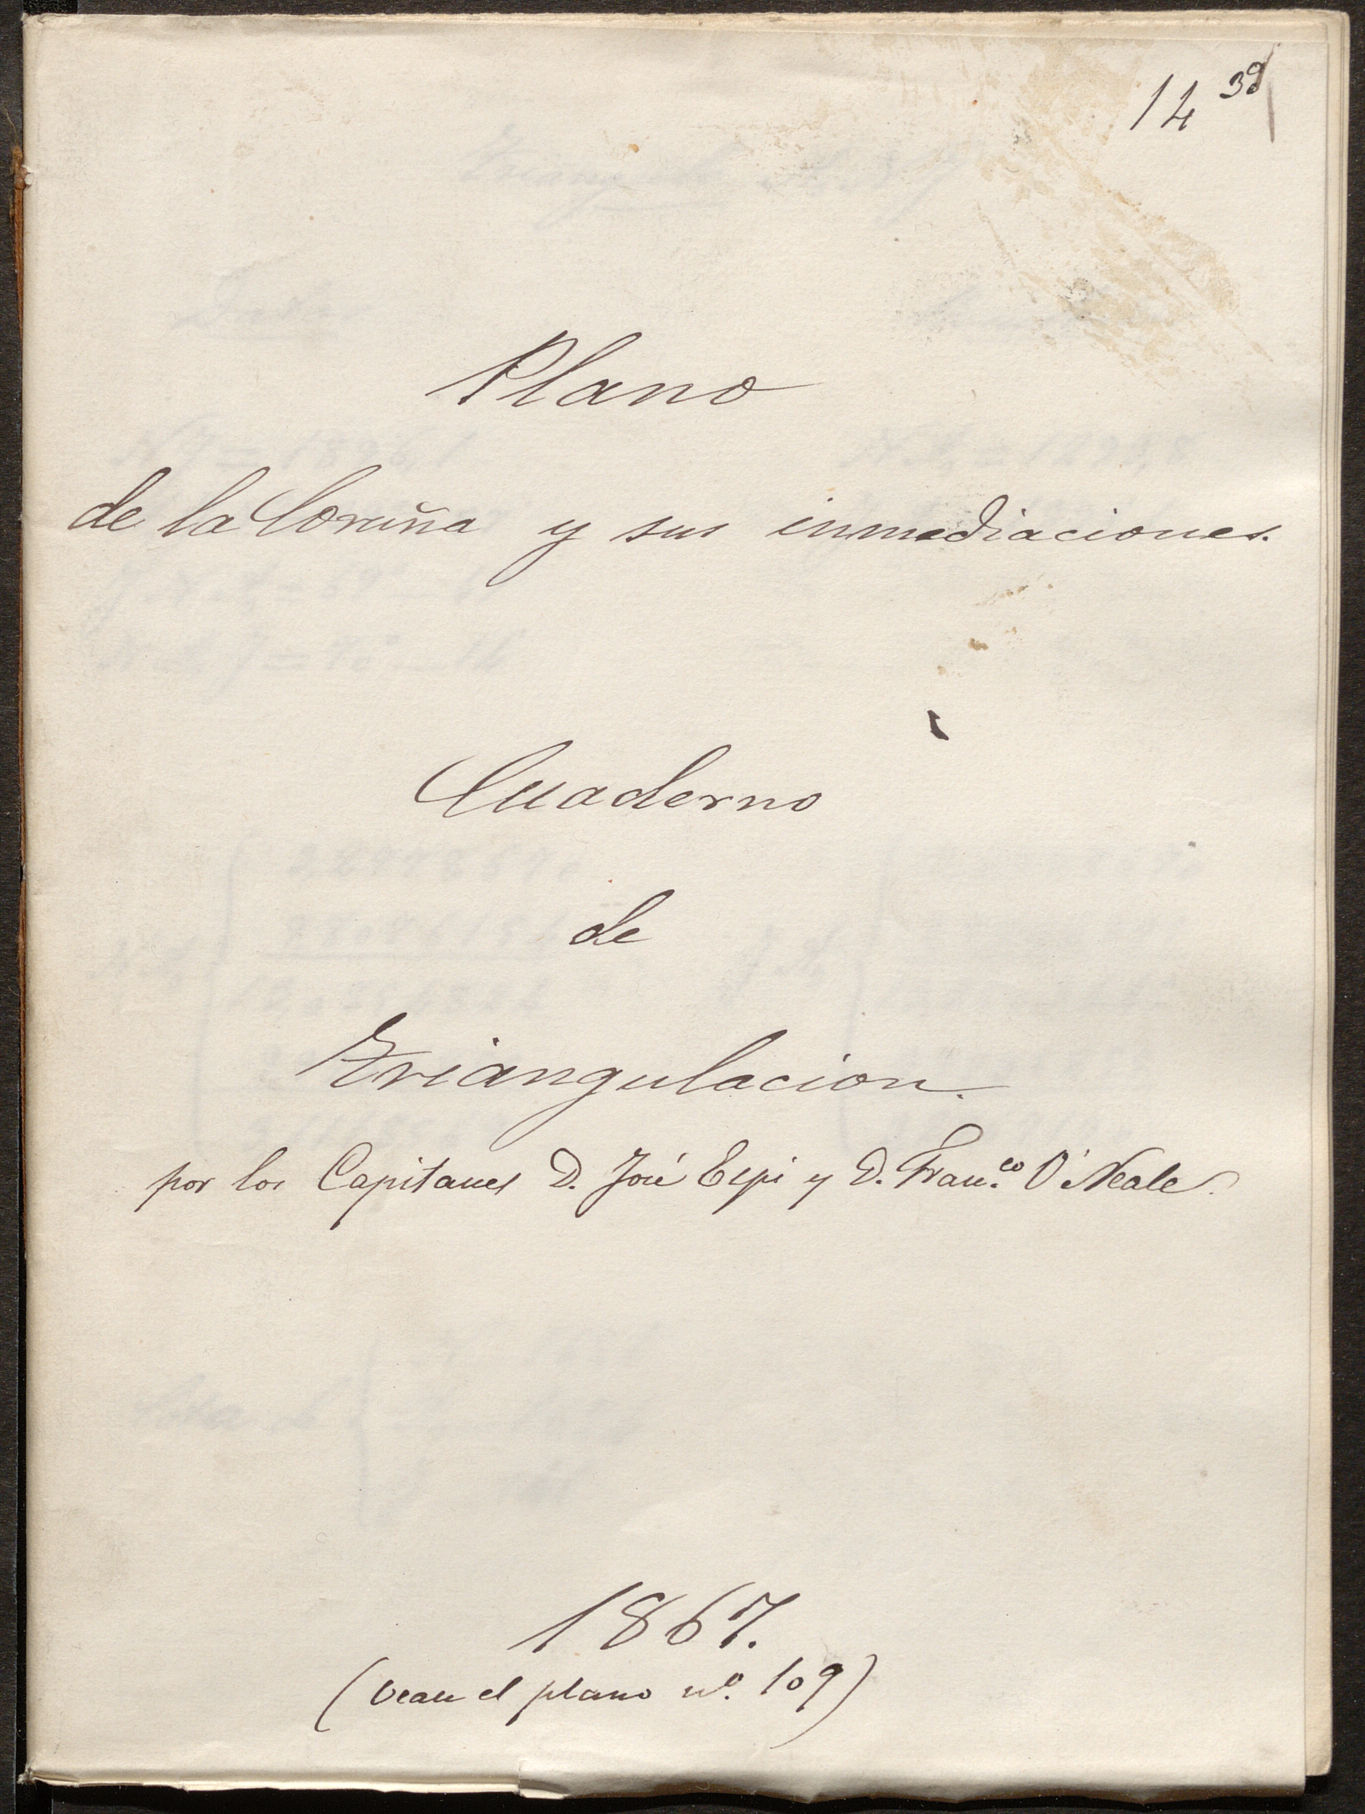 14 39
Plano
de la Coruña y sus inmediaciones.
Cuaderno
de
Triangulacion.
por los Capitanes D. José Espi y D. Fran.co O'Neale.
1867.
(Vease el plano nº. 109)